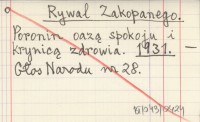 Rywal Zakopanego.
Poronin oazą spokoju i
krynicą zdrowia. 1931. —
Głos Narodu nr 28.